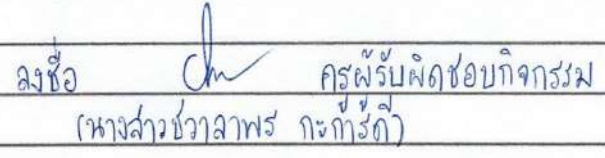 ลงชื่อ ครูผู้รับผิดชอบกิจกรรม
(นางสาวชวาลาพร